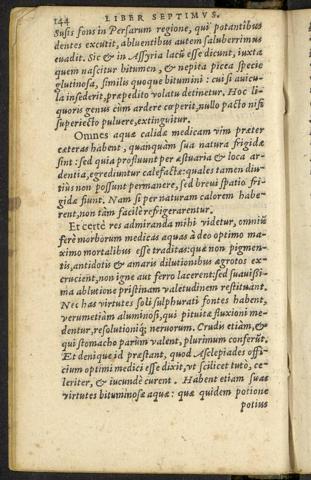 144 LIBER SEPTIMVS.
Susis fons in Persarum regione, qui potantibus
dentes excutit, abluentibus autem saluberrimus
euadit. Sic & in Assyria lacū esse dicunt, iuxta
quem nascitur bitumen, & nepita picea specie
glutinosa, similis quoque bitumini: cui si auicu-
la insederit, præpedito volatu detinetur. Hoc li-
quoris genus cùm ardere cœperit, nullo pacto nisi
superiecto puluere, extinguitur.
Omnes aquæ calidæ medicam vim præter
cæteras habent, quanquàm sua natura frigidæ
sint: sed quia profluunt per æstuaria & loca ar-
dentia, egrediuntur calefactæ: quales tamen diu-
tiùs non possunt permanere, sed breui spatio fri-
gidæ fiunt. Nam si per naturam calorem habe-
rent, non tàm facilè refrigerarentur.
Et certè res admiranda mihi videtur, omniū
ferè morborum medicas aquas à deo optimo ma-
ximo mortalibus esse traditas: quæ non pigmen-
tis, antidotis & amaris dilutionibus ægrotos ex-
crucient, non igne aut ferro lacerent: sed suauissi-
ma ablutione pristinam valetudinem restituant.
Nec has virtutes soli sulphurati fontes habent,
verumetiàm aluminosi, qui pituitæ fluxioni me-
dentur, resolutioniq; neruorum. Crudis etiàm, &
qui stomacho parùm valent, plurimum conferūt.
Et denique id præstant, quod Asclepiades offi-
cium optimi medici esse dixit, vt scilicet tutò, ce-
leriter, & iucundè curent. Habent etiam suas
virtutes bituminosæ aquæ: quæ quidem potione
potius